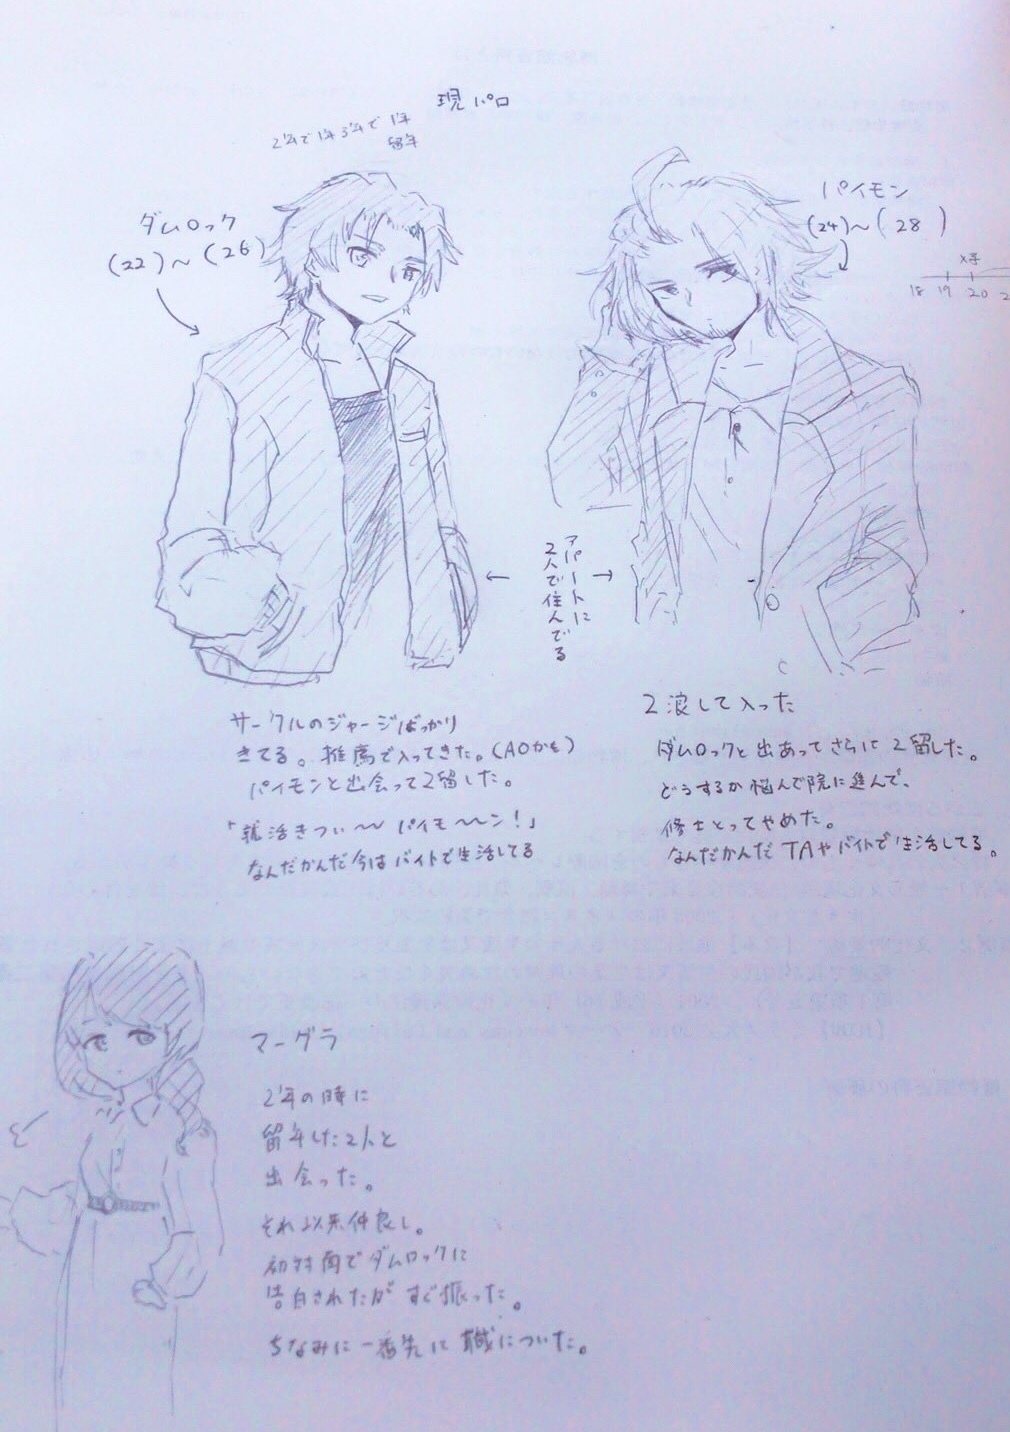 現パロ
2年で1年3年で1年
留年
ダムロック
(22)～(26)
パイモン
(24)～(28)
18 19 20
アパートに
2人で住んでる
サークルのジャージばっかり
きてる。推薦で入ってきた。(AOかも)
パイモンと出会って2留した。
「就活きつい〜〜パイモ〜〜ン!」
なんだかんだ今はバイトで生活してる
2浪して入った
ダムロックと出あってさらに2留した。
どうするか悩んで院に進んで、
修士とってやめた。
なんだかんだTAやバイトで生活してる。
マーグラ
2年の時に
留年した2人と
出会った。
それ以来仲良し。
初対面でダムロックに
告白されたがすぐ振った。
ちなみに一番先に職についた。